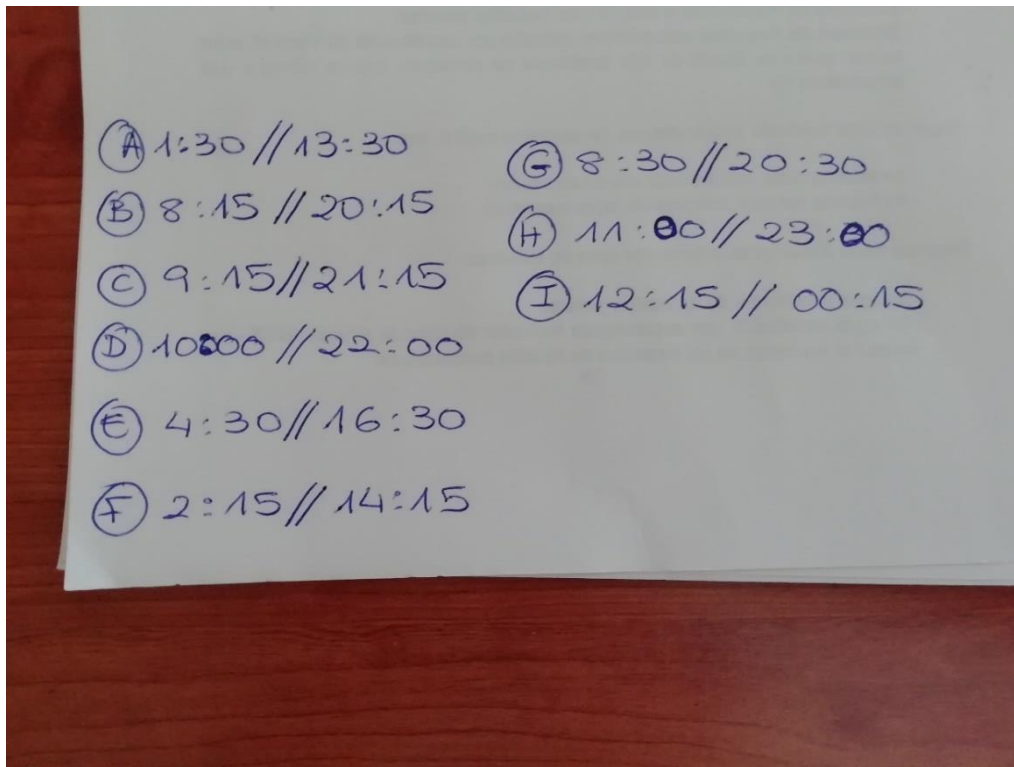 A 1:30 // 13:30
B 8:15 // 20:15
C 9:15 // 21:15
D 10:00 // 22:00
E 4:30 // 16:30
F 2:15 // 14:15
G 8:30 // 20:30
H 11:00 // 23:00
I 12:15 // 00:15